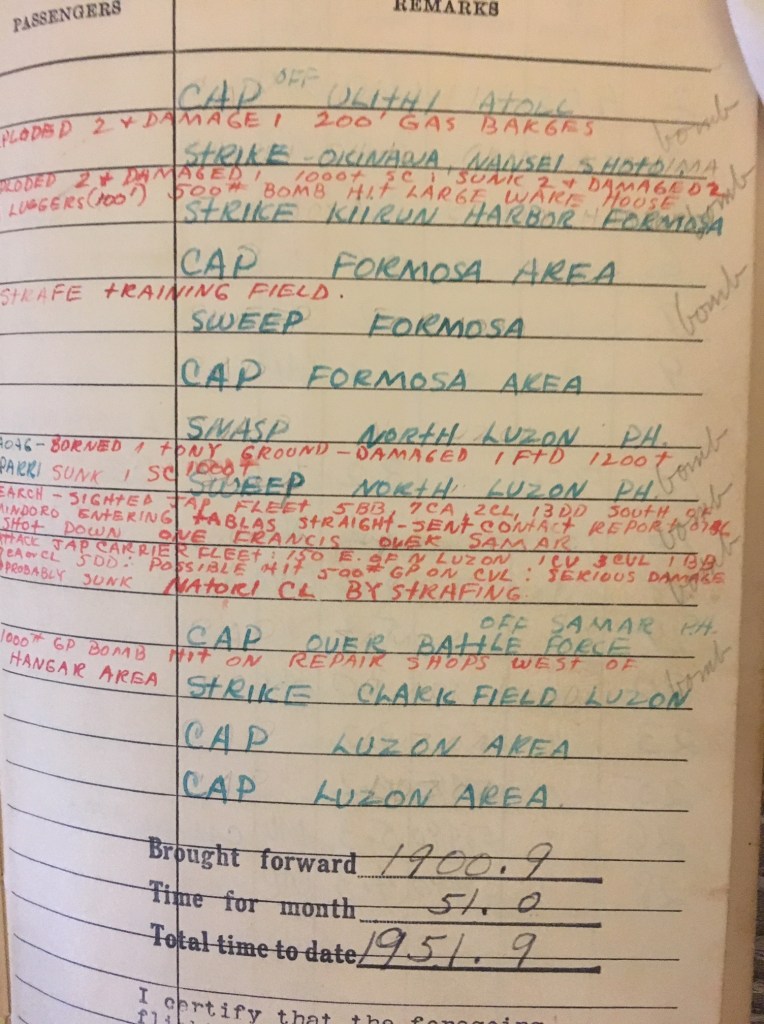 PASSENGERS REMARKS
CAP OFF ULITHI ATOLL
PLODED 2 + DAMAGE 1 200' GAS BARGES bomb
STRIKE - OKINAWA, NANSEI SHOTO
PLODED 2 + DAMAGED 1 1000+ SC; SUNK 2 + DAMAGED 2
LUGGERS (100') 500# BOMB HIT LARGE WARE HOUSE bomb
STRIKE KIIRUN HARBOR FORMOSA
CAP FORMOSA AREA
STRAFE TRAINING FIELD. bomb
SWEEP FORMOSA
CAP FORMOSA AREA
SNASP NORTH LUZON PH.
BORNED 1 TONY GROUND - DAMAGED 1 FTD 1200+
PARRI SUNK 1 SC 1000+ bomb
SWEEP NORTH LUZON PH.
EARCH - SIGHTED JAP FLEET 5BB, 7CA, 2CL, 13DD SOUTH OF
INDORO ENTERING TABLAS STRAIGHT - SENT CONTACT REPORT bomb
SHOT DOWN ONE FRANCIS OVER SAMAR
TTACK JAP CARRIER FLEET: 150 E. OF N LUZON 1CV 3CVL 1BB bomb
5DD: POSSIBLE HIT 500# GP ON CVL: SERIOUS DAMAGE
PROBABLY SUNK NATORI CL BY STRAFING. bomb
OFF SAMAR PH.
CAP OVER BATTLE FORCE
1000# GP BOMB HIT ON REPAIR SHOPS WEST OF
HANGAR AREA bomb
STRIKE CLARK FIELD LUZON
CAP LUZON AREA
CAP LUZON AREA.
Brought forward 1900.9
Time for month 51.0
Total time to date 1951.9
I certify that the foregoing